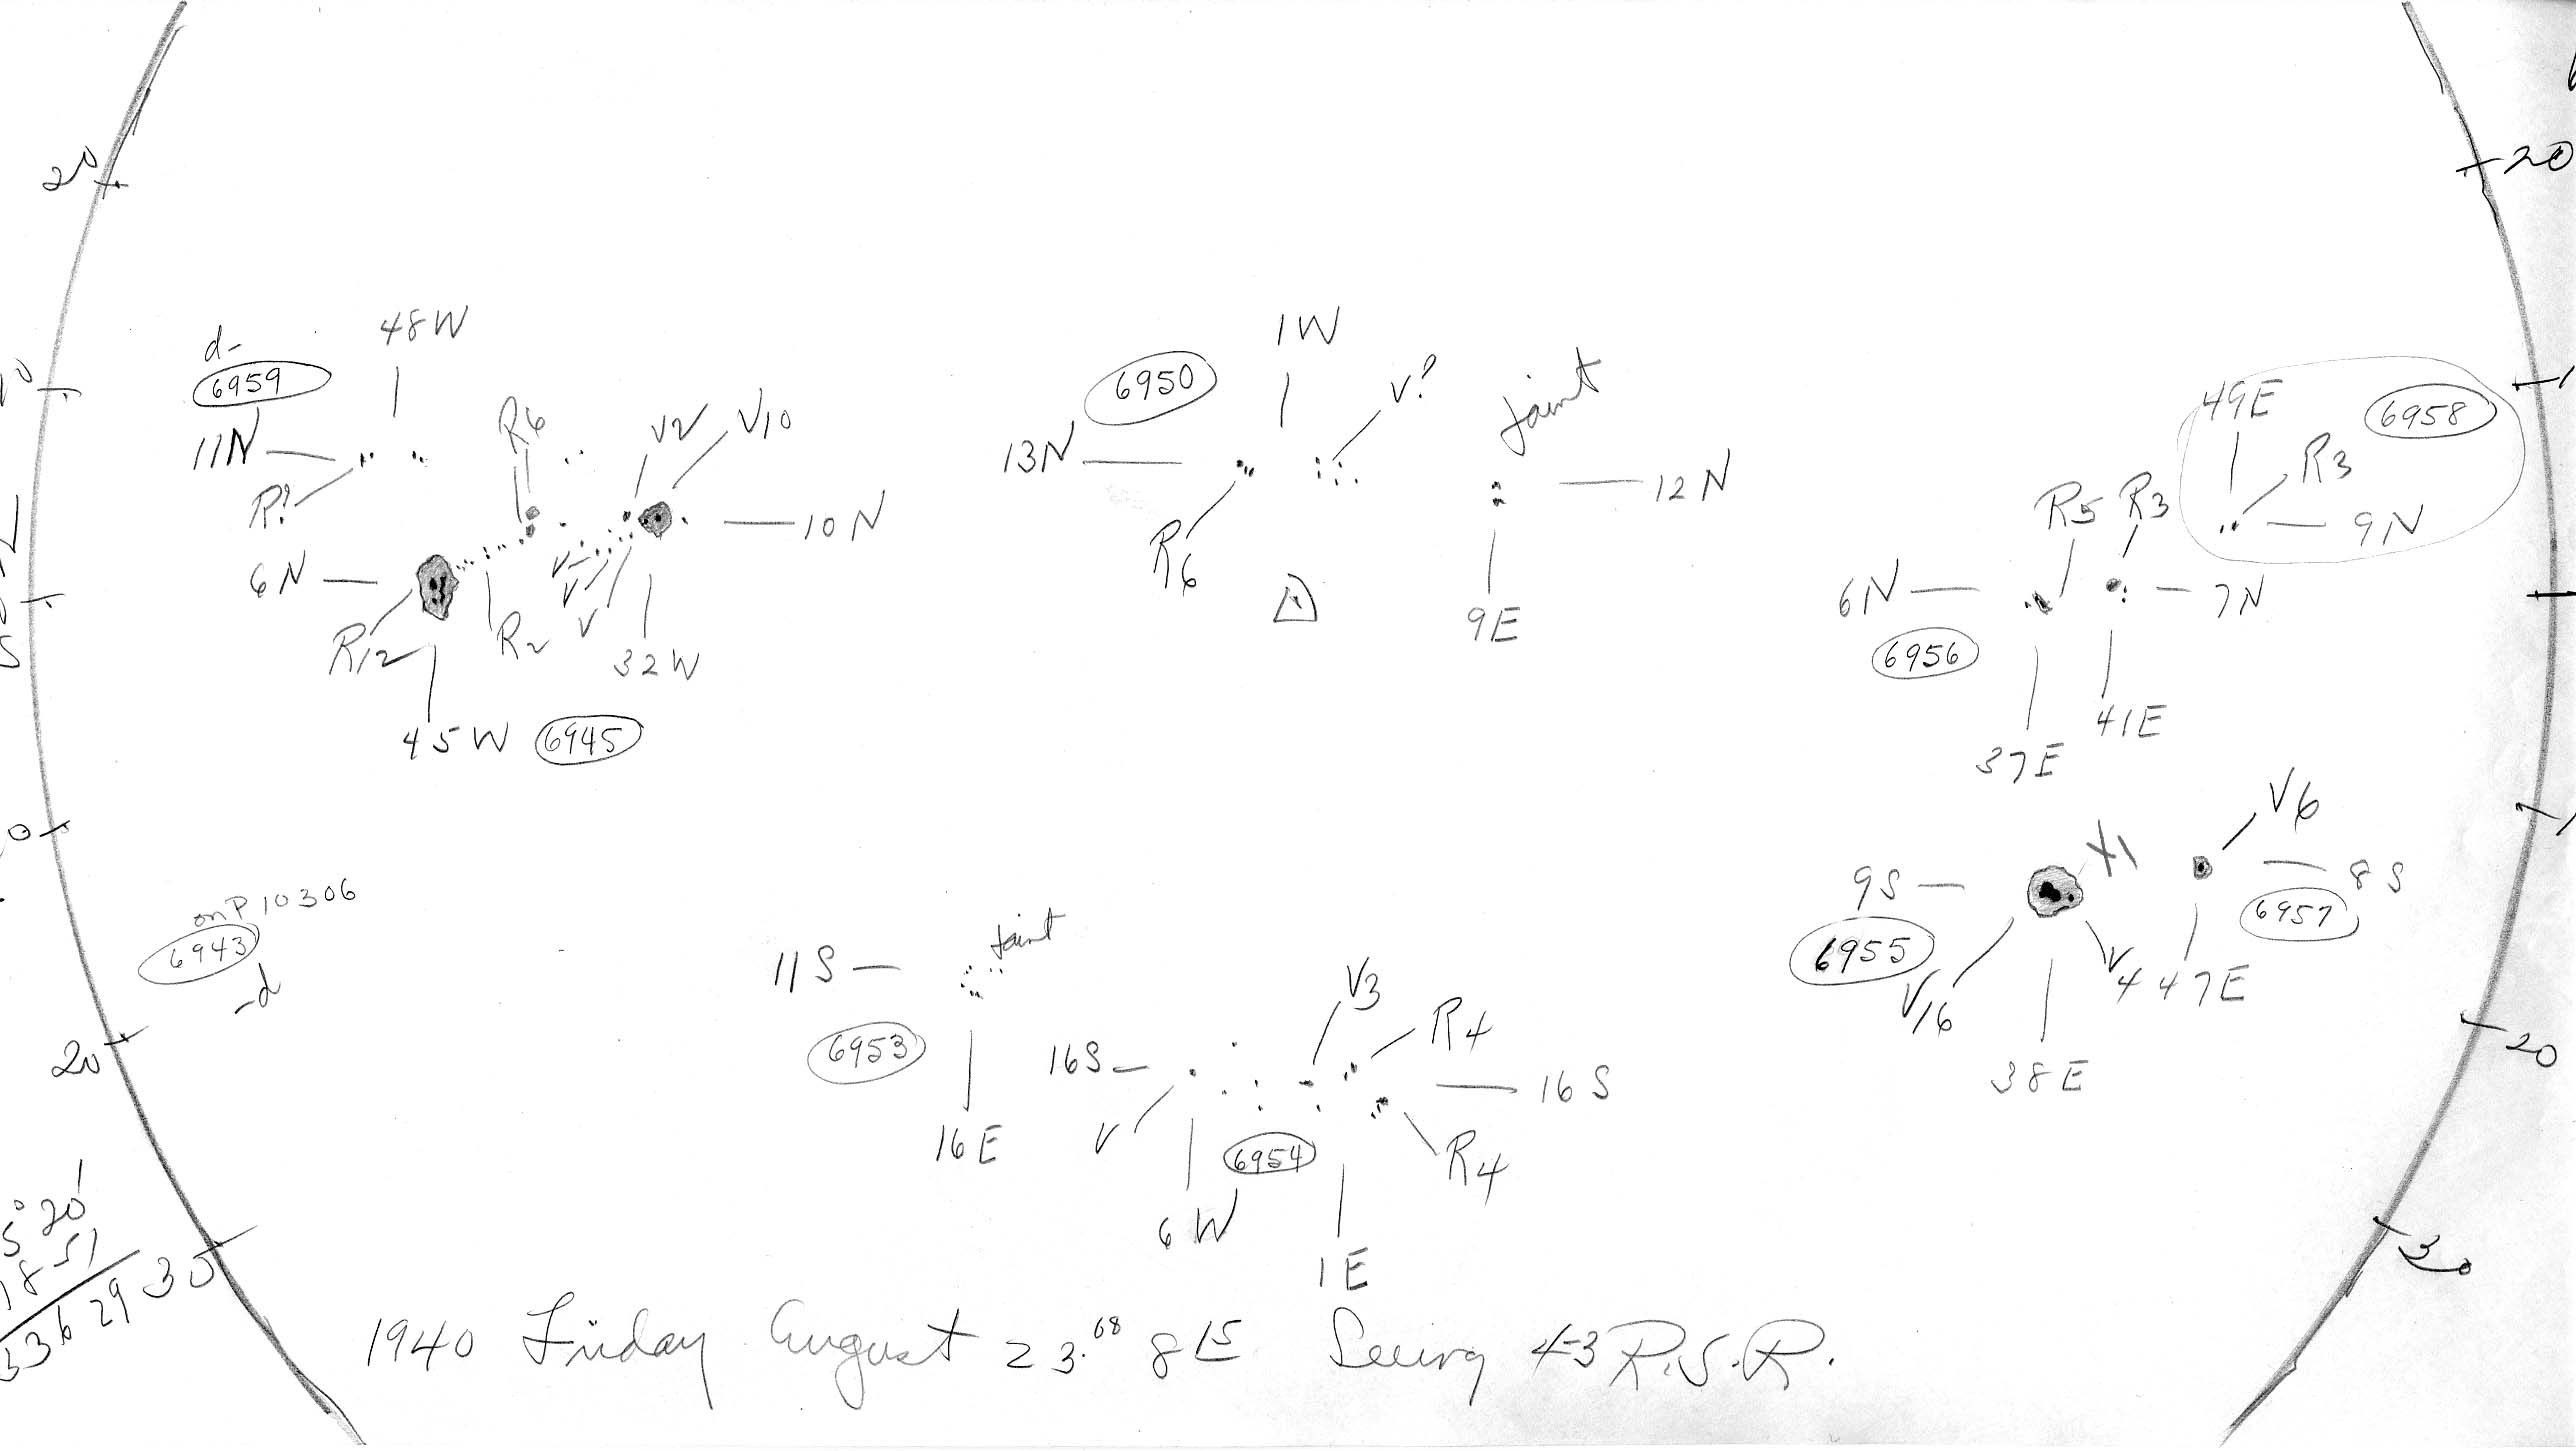 20
20
d-
6959
48W
11N
R?
R6
V2
V10
10N
6N
R12
R2
V
V
V
32W
45W
6945
1W
6950
V?
faint
13N
R6
12N
9E
49E
6958
R3
9N
R5
R3
6N
6956
7N
41E
37E
0
onP10306
6943
-d
20
11S
faint
6953
16E
16S
V
6W
6954
V3
R4
16S
R4
1E
V6
X1
9S
8S
6955
6957
V16
V4
47E
38E
20
30
5° 20'
18 51
336 29
30
1940 Friday August 23.68 8 15 Seeing 4-3 R.S.R.